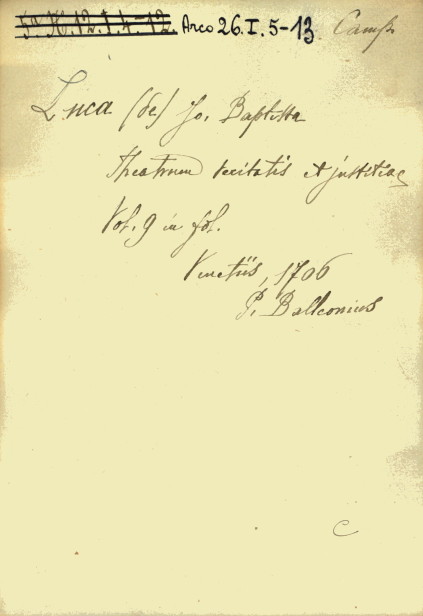 5ª K.12.I.4-12. Arco 26.I.5-13 Camp
Luca (de) Jo. Baptista
Theatrum veritatis et justitiae
Vol. 9 in fol.
Venetiis, 1706
P. Balleonius
C